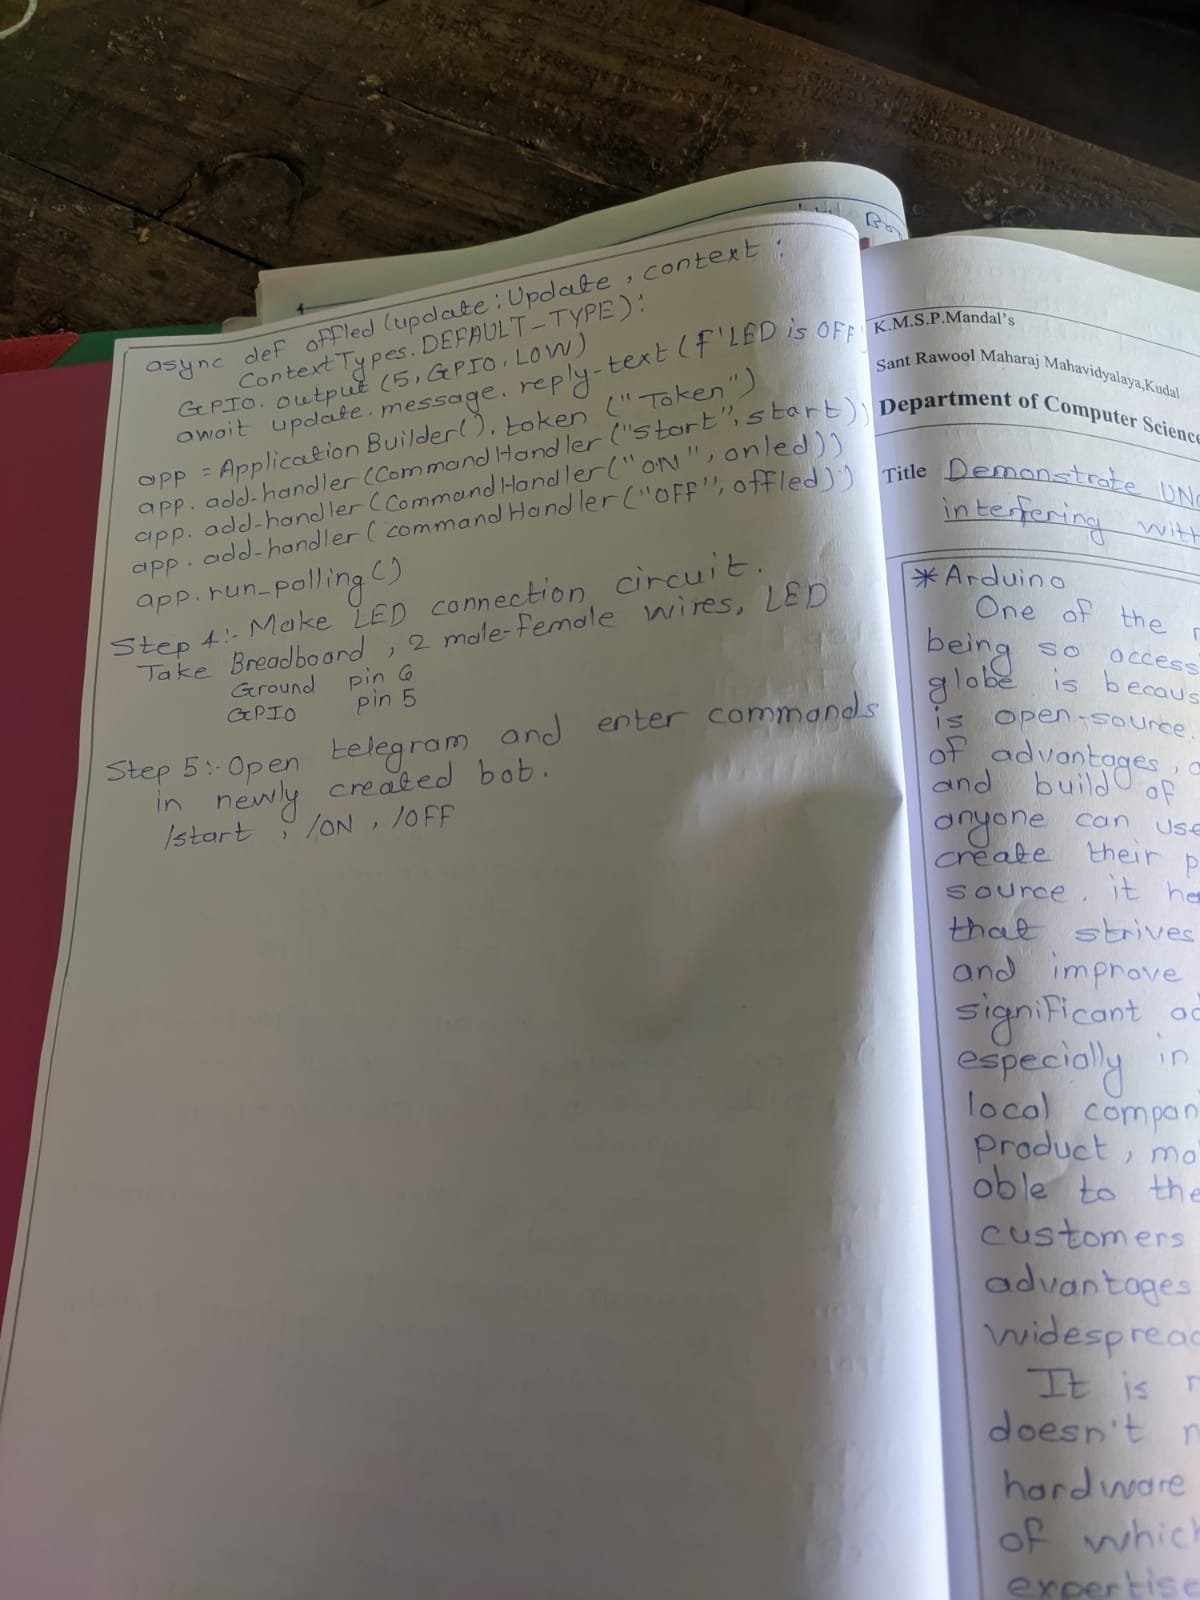 async def offled (update : Update , context :
ContextTypes. DEFAULT-TYPE) :
GPIO. output (5, GPIO. LOW)
await update. message. reply-text (f'LED is OFF
app = Application Builder(). token ("Token")
app. add-handler (Command Handler ("start", start))
app. add-handler (Command Handler ("ON", onled))
app. add-handler ( command Handler ("OFF", offled))
app. run_polling ()
Step 4:- Make LED connection circuit.
Take Breadboard , 2 male-female wires, LED
Ground pin 6
GPIO pin 5
Step 5:- Open telegram and enter commands
in newly created bot.
/start , /ON , /OFF
K.M.S.P.Mandal's
Sant Rawool Maharaj Mahavidyalaya,Kudal
Department of Computer Science
Title Demonstrate
interfering with
* Arduino
One of the
being so access
globe is becaus
is open-source.
of advantages,
and build of
anyone can use
create their p
source. it ha
that strives
and improve
significant ad
especially in
local compan
product, ma
able to the
customers
advantages
widespread
It is
doesn't
hardware
of which
expertise